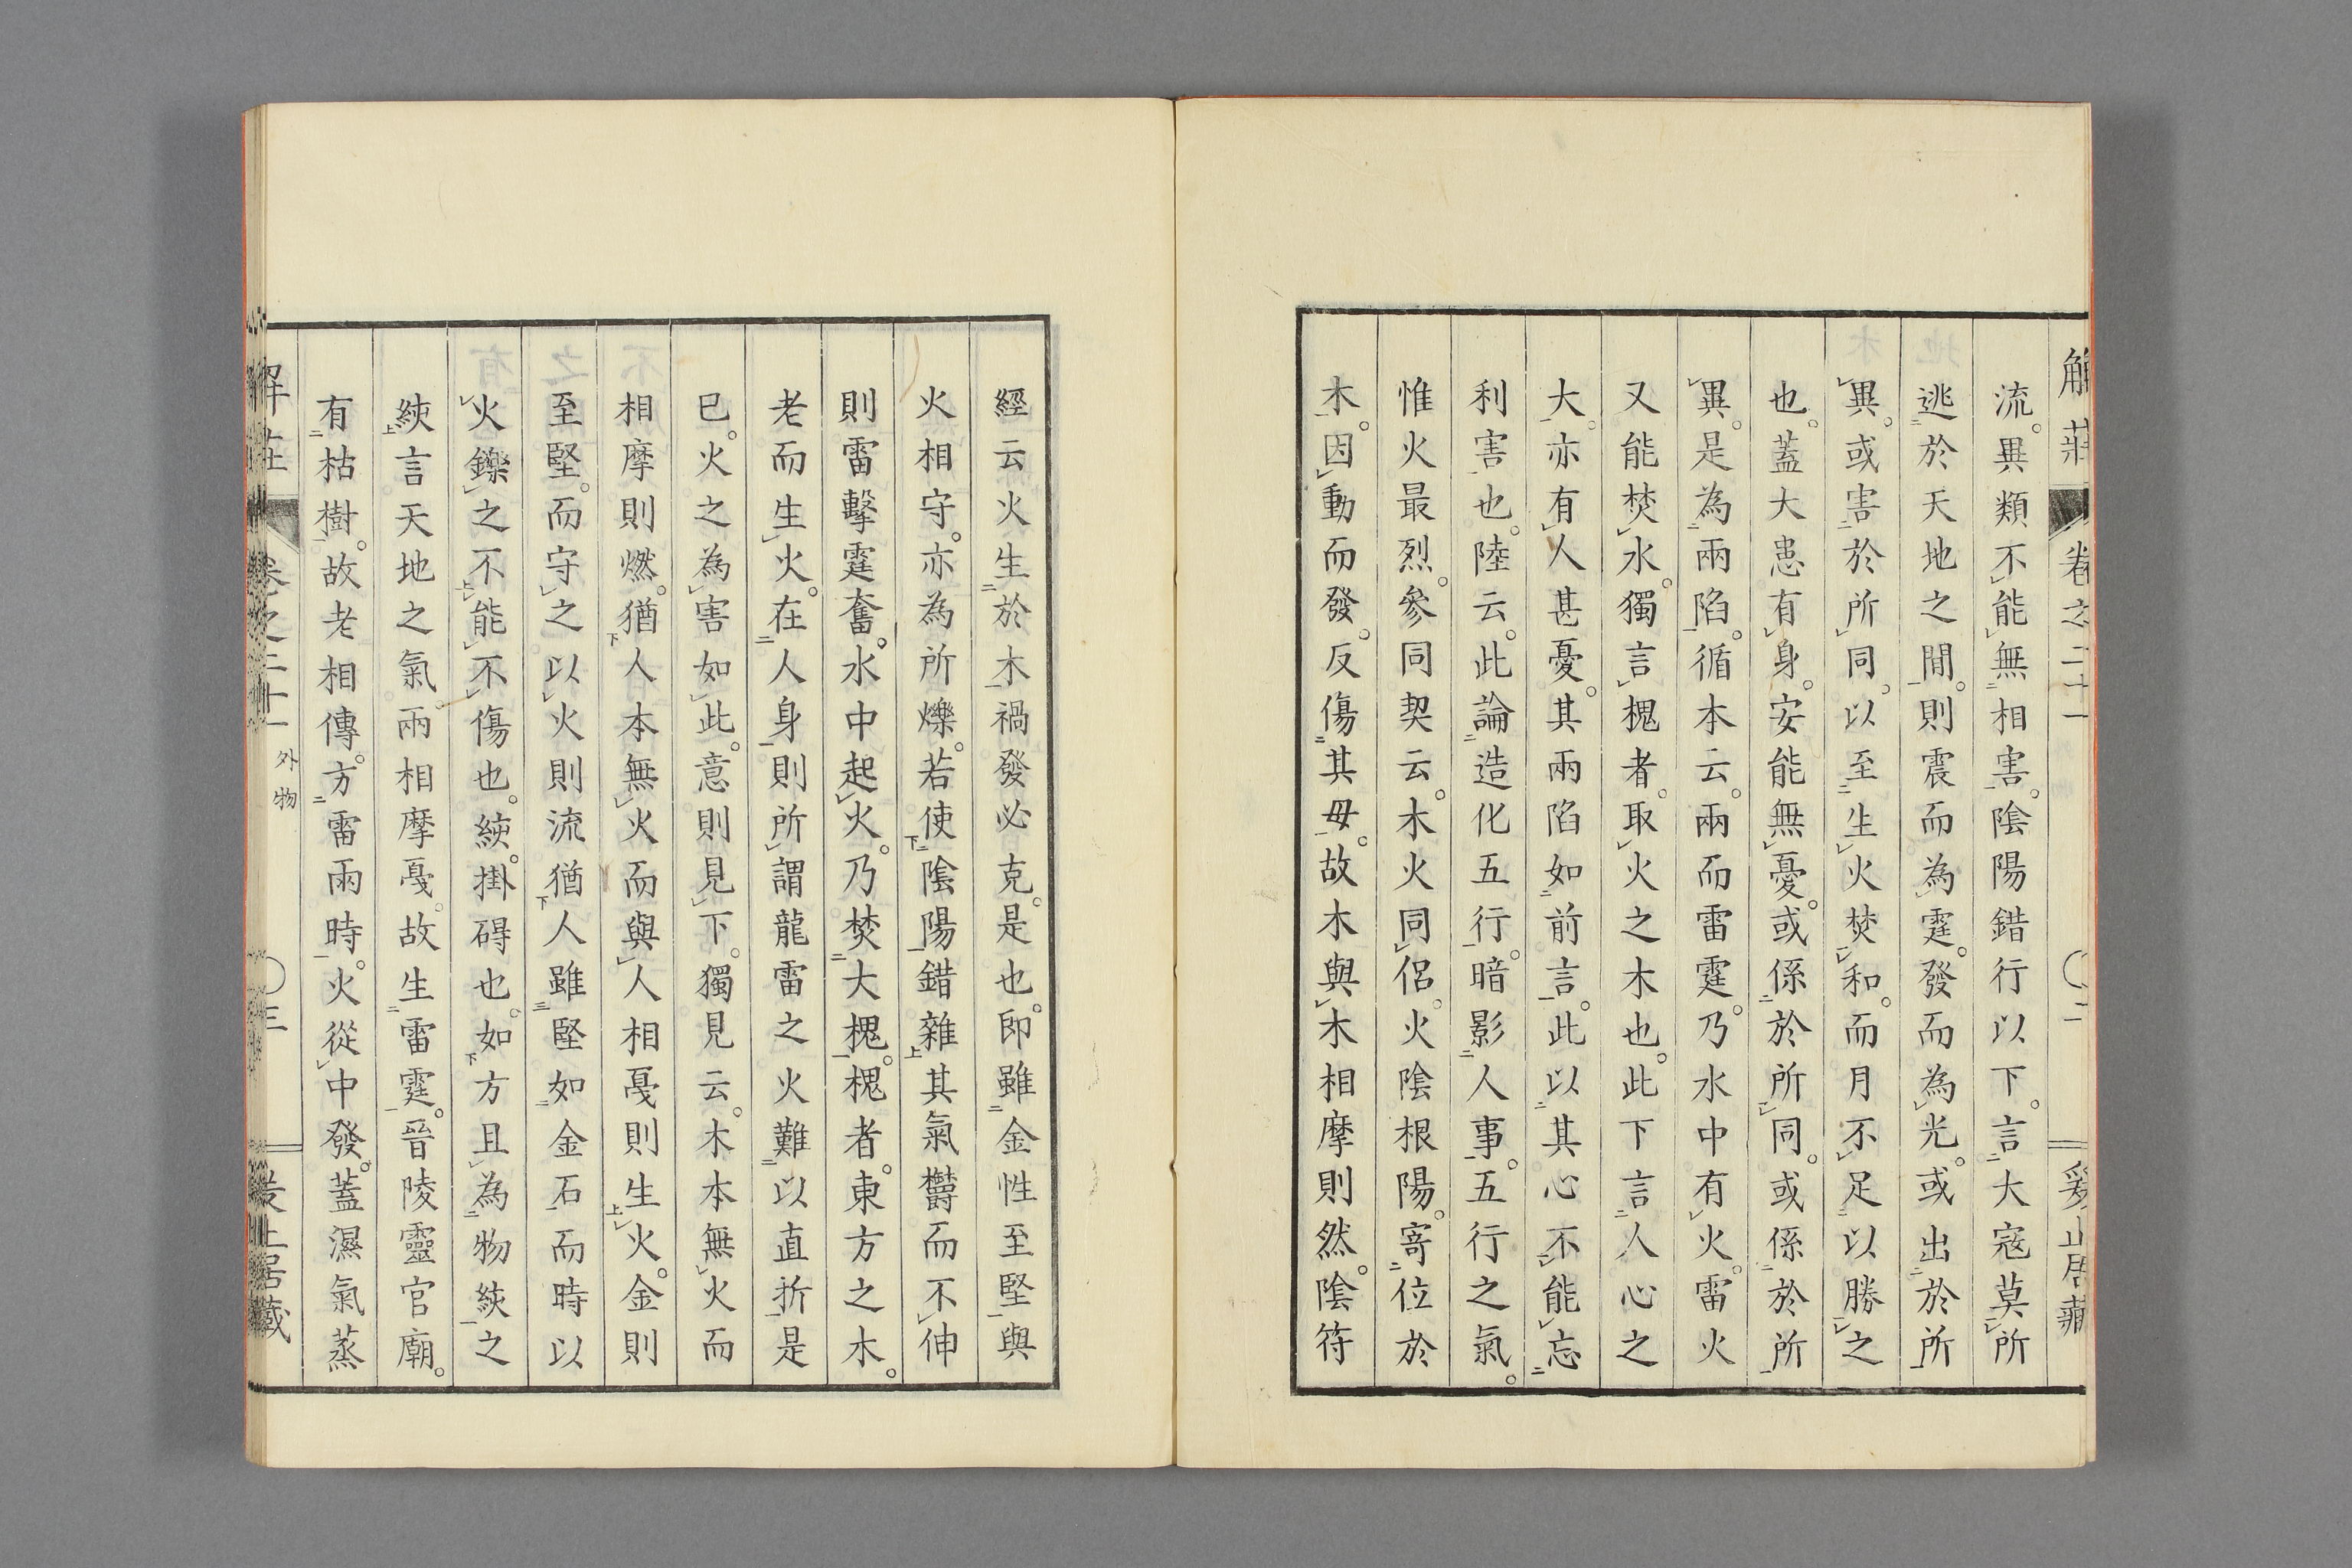 解莊 卷之二十一 〇二 爰止居藏
流。異類不能無相害。陰陽錯行以下。言大寇莫所
逃於天地之間。則震而為霆。發而為光。或出於所
異。或害於所同。以至生火焚和。而月不足以勝之
也。蓋大患有身。安能無憂。或係於所同。或係於所
異。是為兩陷。循本云。兩而雷霆。乃水中有火。雷火
又能焚水。獨言槐者。取火之木也。此下言人心之
大。亦有人甚憂。其兩陷如前言。此以其心不能忘
利害也。陸云。此論造化五行。暗影人事。五行之氣。
惟火最烈。參同契云。木火同侶。火陰根陽。寄位於
木。因動而發。反傷其母。故木與木相摩則然。陰符
經云火生於木禍發必克。是也。即雖金性至堅與
火相守。亦為所爍。若使陰陽錯雜其氣欝而不伸
則雷擊霆奮。水中起火。乃焚大槐。槐者。東方之木。
老而生火。在人身則所謂龍雷之火難以直折是
已。火之為害如此。意則見下。獨見云。木本無火而
相摩則燃。猶人本無火而與人相戛則生火。金則
至堅。而守之以火則流猶人雖堅如金石而時以
火鑠之不能不傷也。絯。掛碍也。如方且為物絯之
絯言天地之氣。兩相摩戛。故生雷霆。晉陵靈官廟。
有枯樹。故老相傳。方雷雨時。火從中發。蓋濕氣蒸
解莊 卷之二十一 外物 〇三 爰止居藏